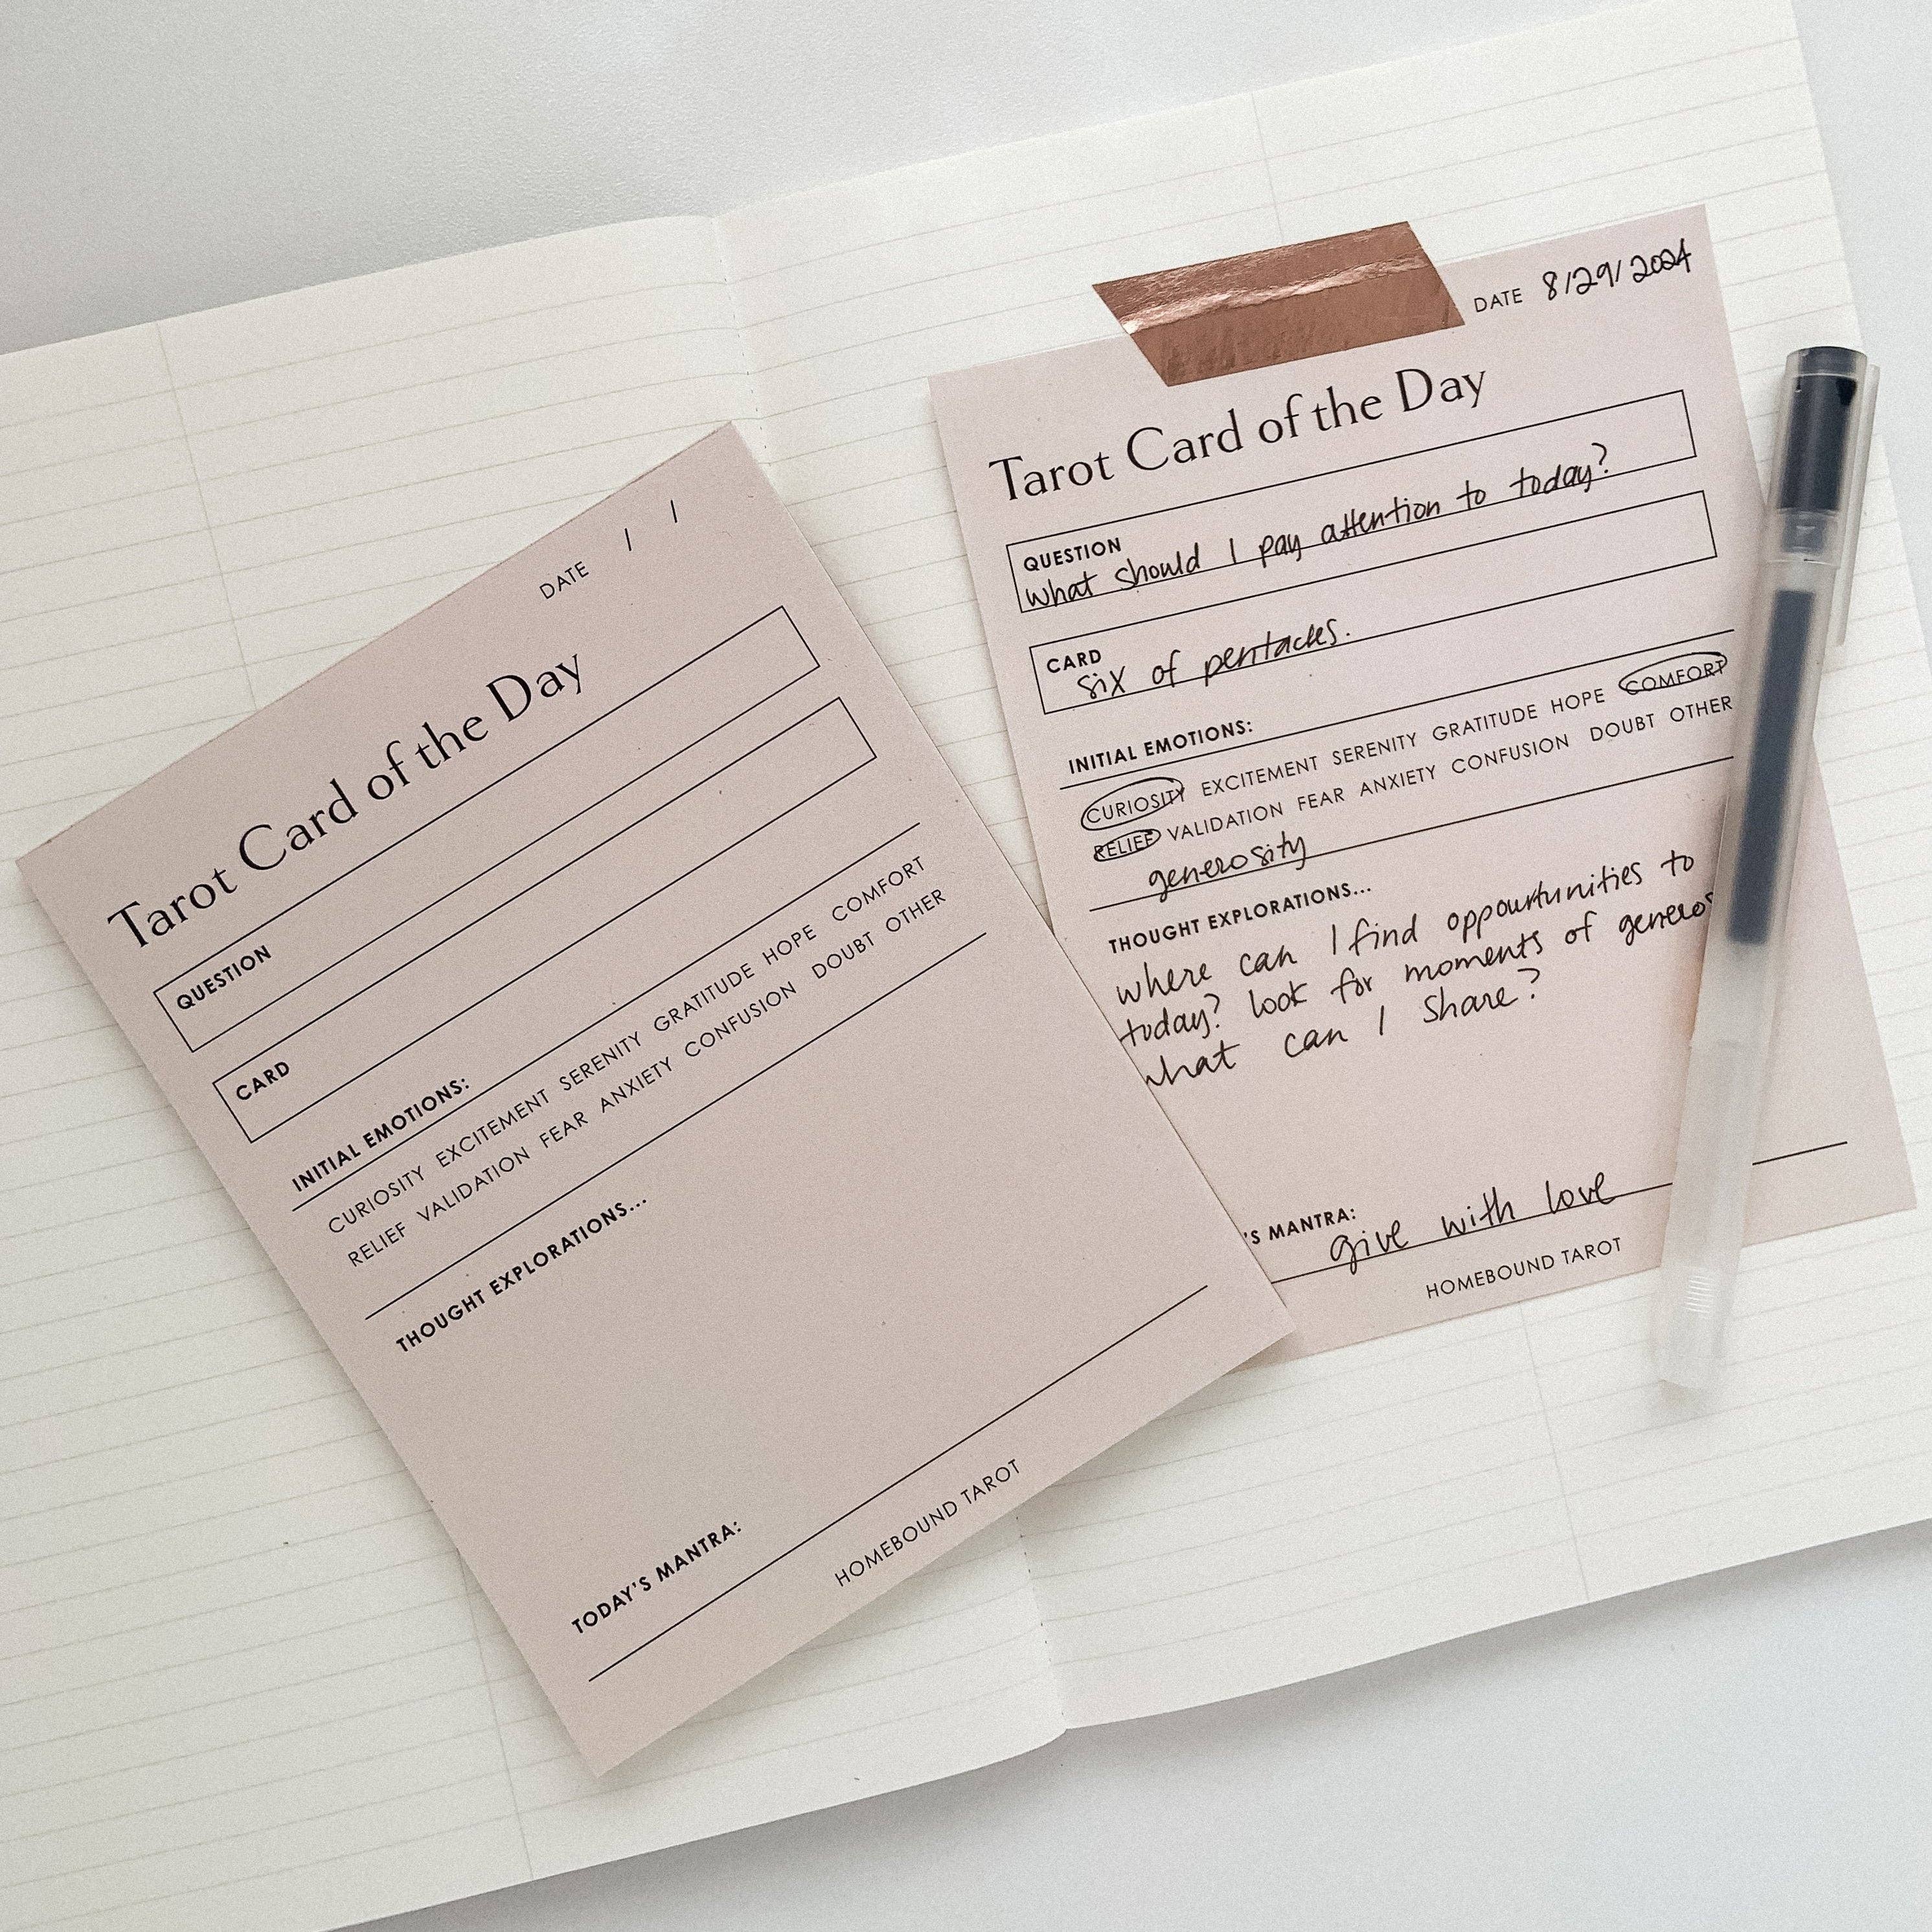 DATE / /
Tarot Card of the Day
QUESTION
CARD
INITIAL EMOTIONS:
CURIOSITY EXCITEMENT SERENITY GRATITUDE HOPE COMFORT
RELIEF VALIDATION FEAR ANXIETY CONFUSION DOUBT OTHER
THOUGHT EXPLORATIONS...
TODAY'S MANTRA:
HOMEBOUND TAROT
DATE 8/29/2024
Tarot Card of the Day
QUESTION
what should I pay attention to today?
CARD
six of pentacles.
INITIAL EMOTIONS:
CURIOSITY EXCITEMENT SERENITY GRATITUDE HOPE COMFORT
RELIEF VALIDATION FEAR ANXIETY CONFUSION DOUBT OTHER
generosity
THOUGHT EXPLORATIONS...
where can I find oppourtunities to
today? look for moments of
what can I share?
'S MANTRA:
give with love
HOMEBOUND TAROT